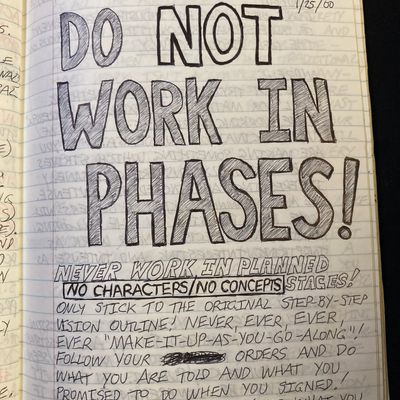 1/25/00
DO NOT
WORK IN
PHASES!
NEVER WORK IN PLANNED
NO CHARACTERS/NO CONCEPTS STAGES!
ONLY STICK TO THE ORIGINAL STEP-BY-STEP
VISION OUTLINE! NEVER, EVER, EVER,
EVER "MAKE-IT-UP-AS-YOU-GO-ALONG"!
FOLLOW YOUR ORDERS AND DO
WHAT YOU ARE TOLD AND WHAT YOU
PROMISED TO DO WHEN YOU SIGNED!
WHAT YOU